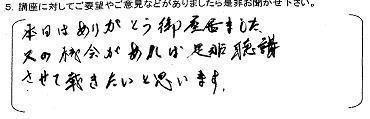 5. 講座に対してご要望やご意見などがありましたら是非お聞かせ下さい。
本日はありがとう御座居ました
又の機会があれば是非聴講
させて戴きたいと思います。